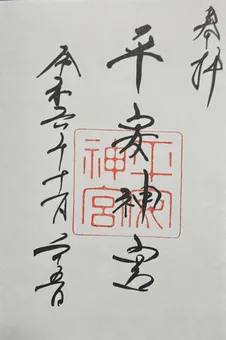 奉拝
平安神宮
平安
神宮
令和六年十一月二十五日